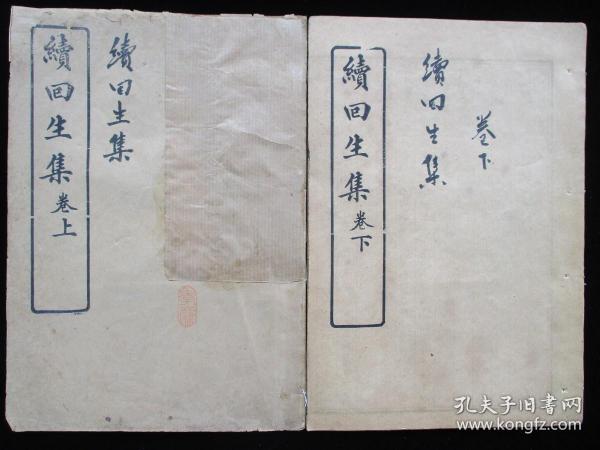 續回生集卷上
續回生集
續回生集卷下
續回生集
卷下
孔夫子旧书网
www.kongfz.com